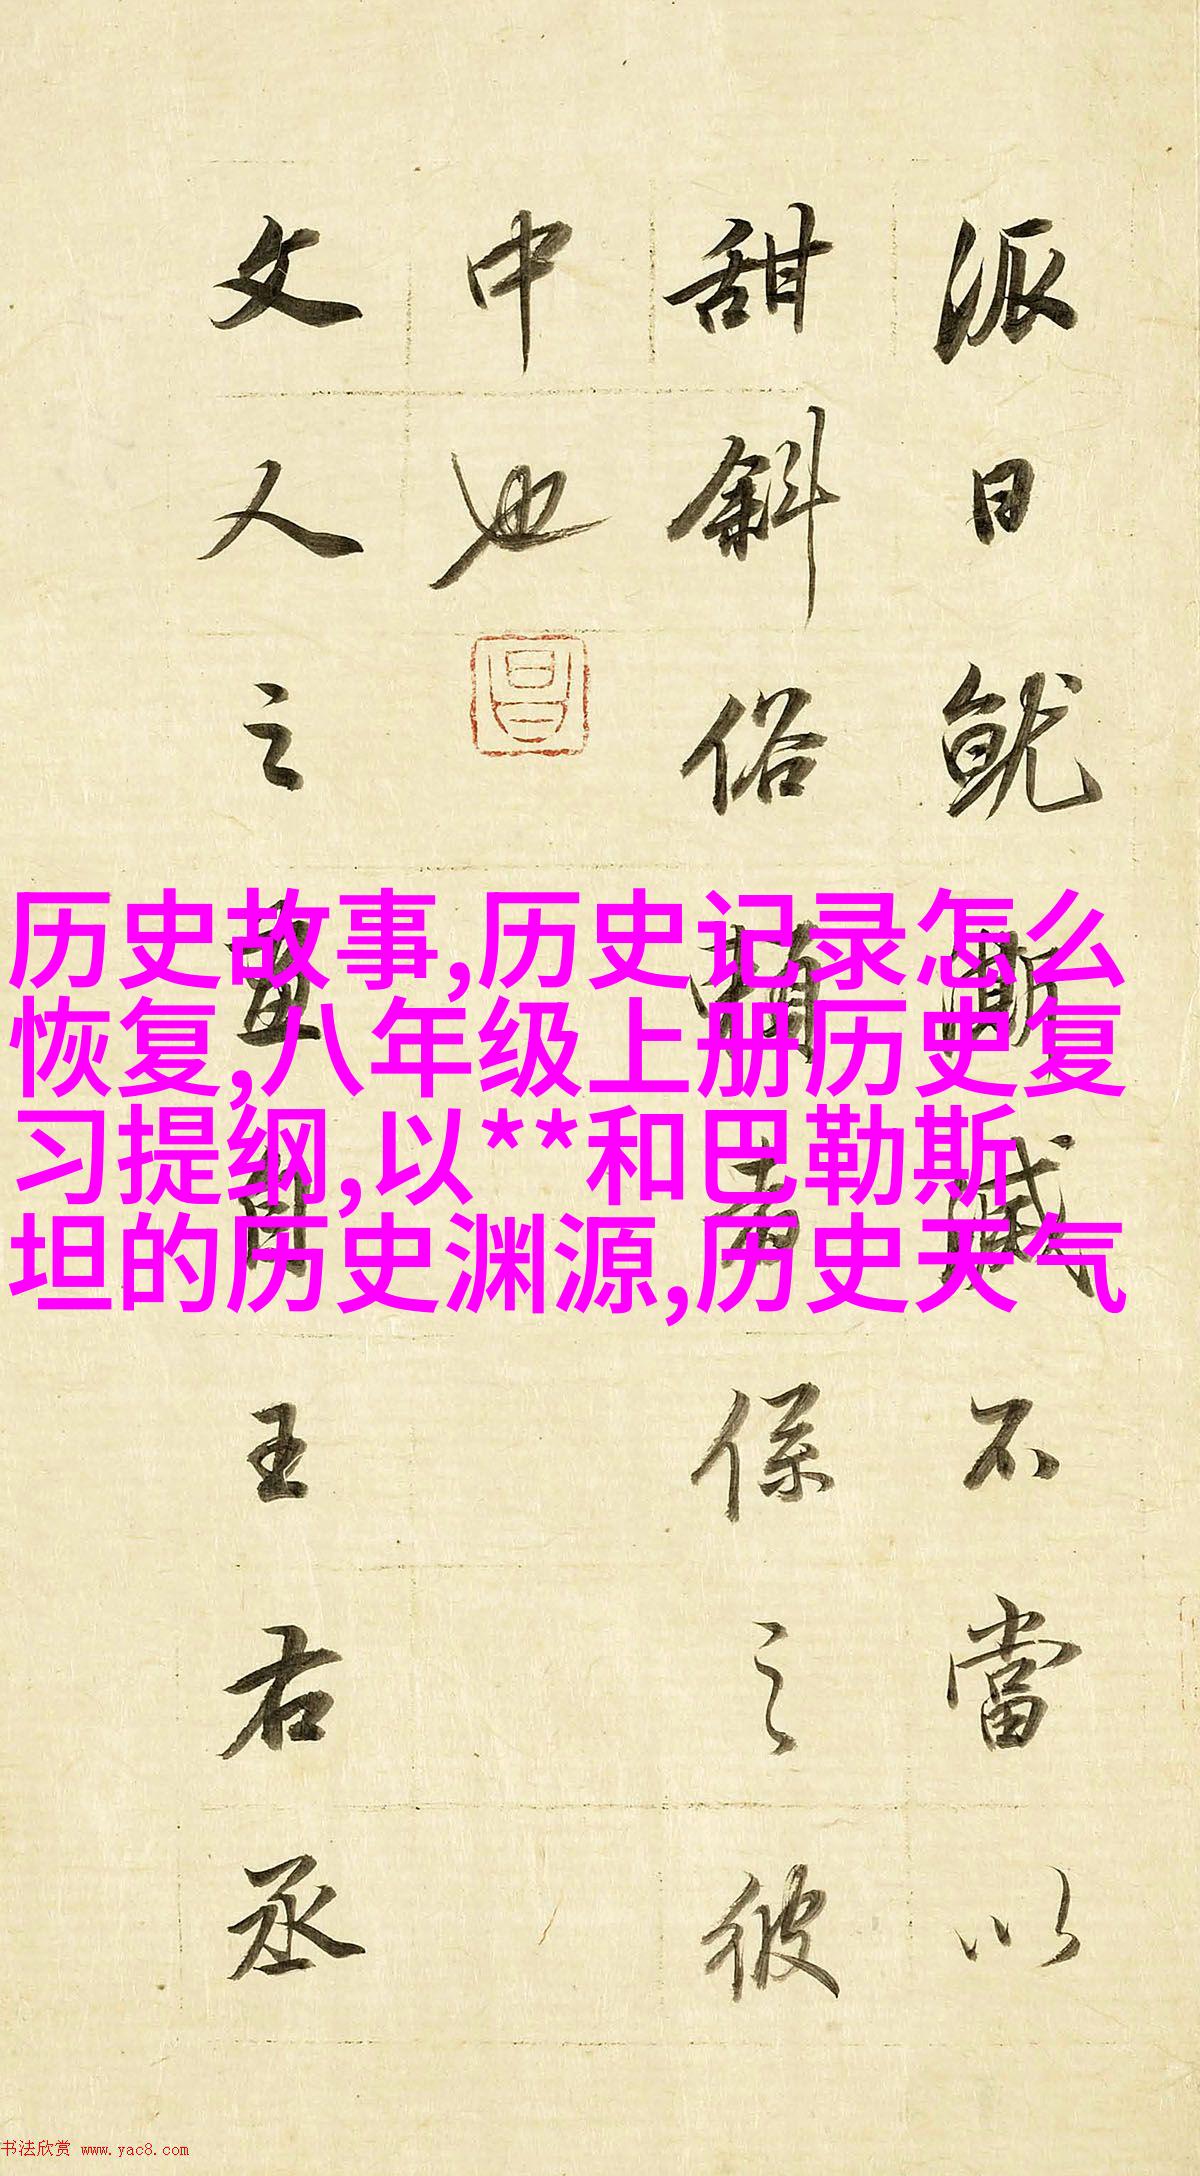 派日就澌滅不當以
甜斜俗賴者係之彼
中也
昌
文人之畫自王右丞
历史故事,历史记录怎么
恢复,八年级上册历史复
习提纲,以**和巴勒斯
坦的历史渊源,历史天气
书法欣赏 www.yac8.com